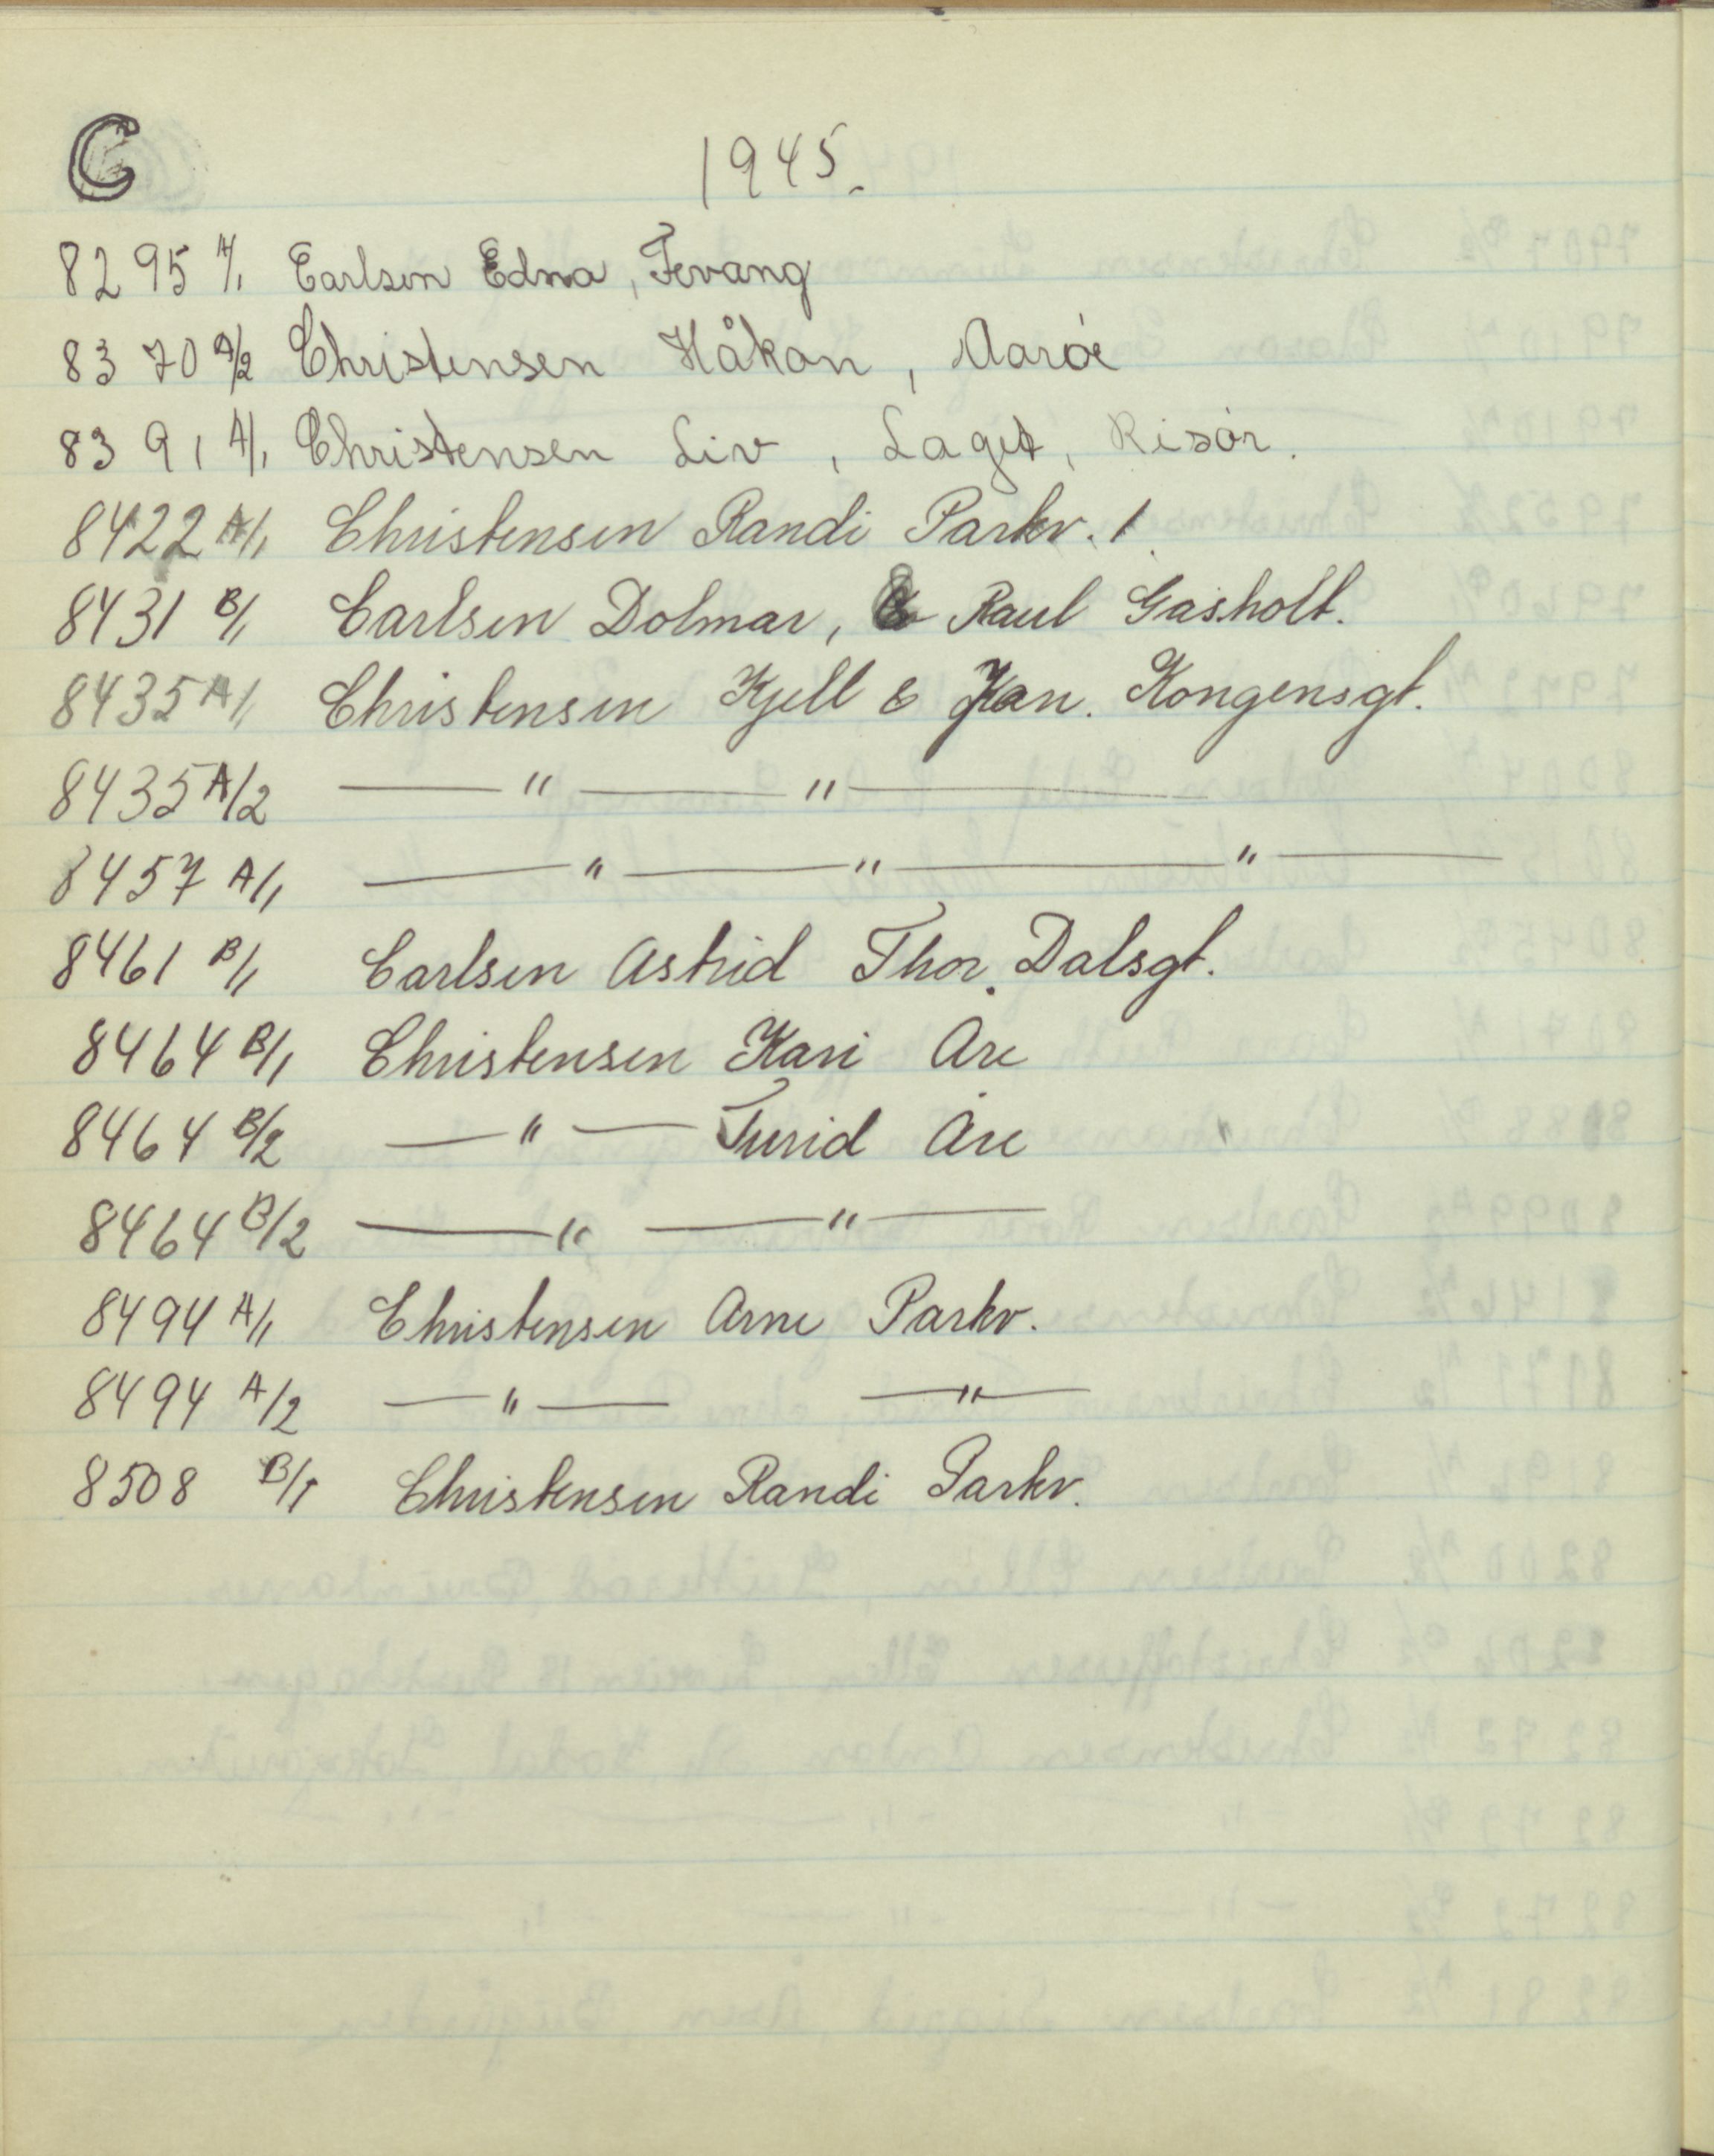 C 1945.
8295 A/1 Carlsen Edna, Fevang
8370 A/2 Christensen Håkon, Aarøe
8391 A/1 Christensen Liv, Laget, Risør.
8422 A/1 Christensen Randi Parkv. 1
8431 B/1 Carlsen Dolmar, & Paul Gasholt.
8435 A/1 Christensen Kjell & Jan. Kongensgt.
8435 A/2 — " — " —
8457 A/1 — " — " — " —
8461 B/1 Carlsen Astrid Thor. Dalsgt.
8464 B/1 Christensen Kari Are
8464 B/2 — " — Turid Åre
8464 B/2 — " — " —
8494 A/1 Christensen Arne Parkv.
8494 A/2 — " — — " —
8508 B/1 Christensen Randi Parkv.